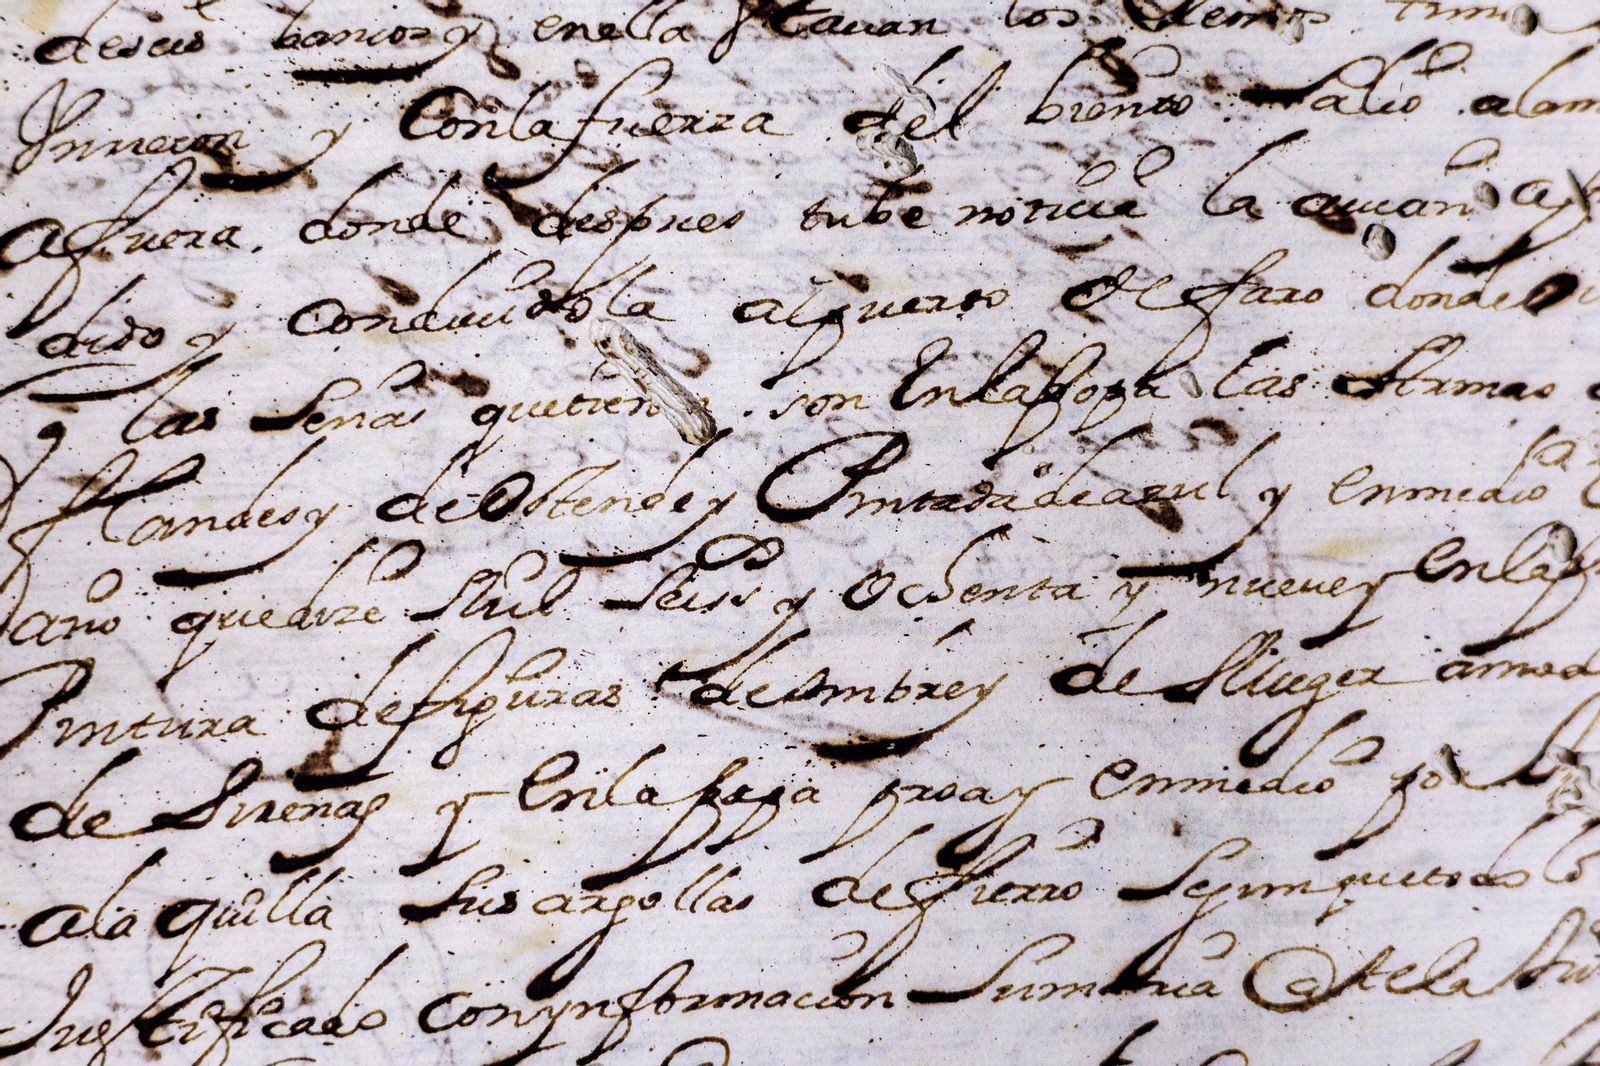 deseis bancos y enella stauan los demas
y Conlafuerza del biento salio alam
afuera. donde despues tube noticia la auian
dido y conduuidola alpuerto de faro donde
y las señas quetiene. son Enlapopa las Armas
flandes y de Ostende y Pintada de azul y enmedio
año quedize Mil seiss y ochenta y nueue y enlap
Pintura defiguras de ombre y de Muger
de Sirenas y Enlapopa proa y enmedio por
ala quilla sus argollas defierro segun quetodo lo
Justificado conynformacion sumaria Antela